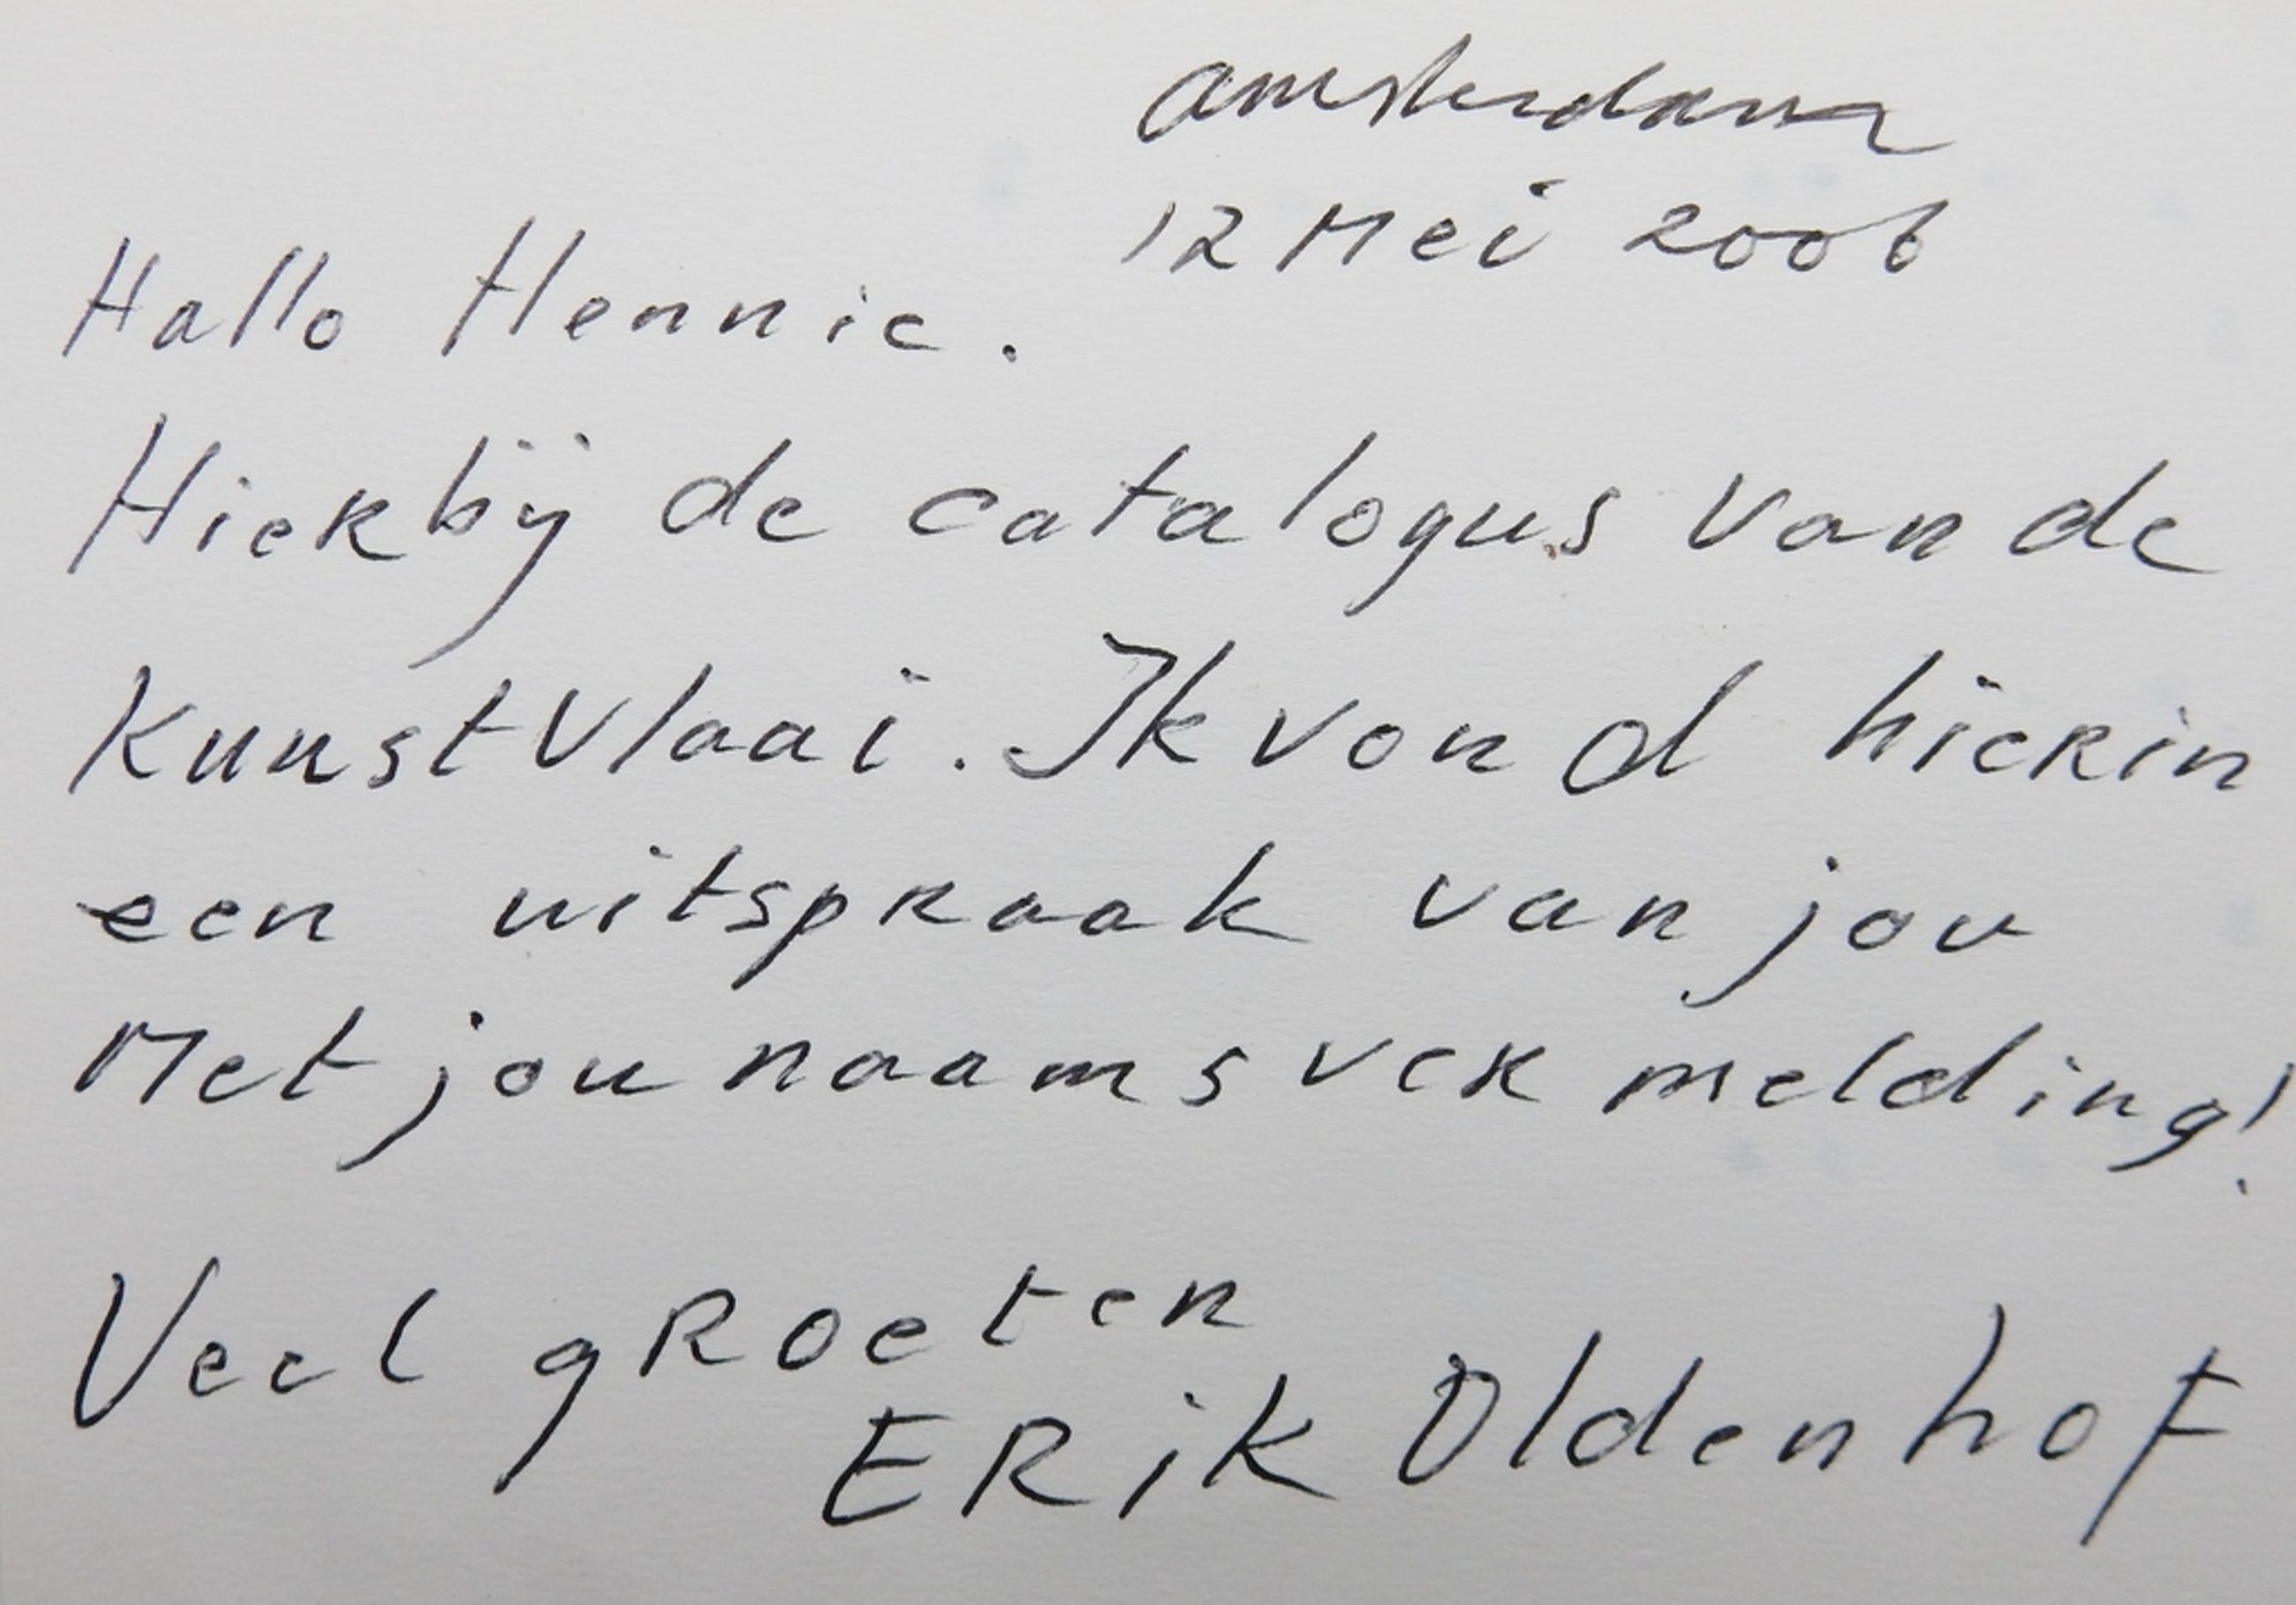 Amsterdam
12 Mei 2006
Hallo Hennie.
Hierbij de catalogus van de
Kunstvlaai. Ik vond hierin
een uitspraak van jou
Met jou naamsvermelding!
Veel groeten
Erik Oldenhof